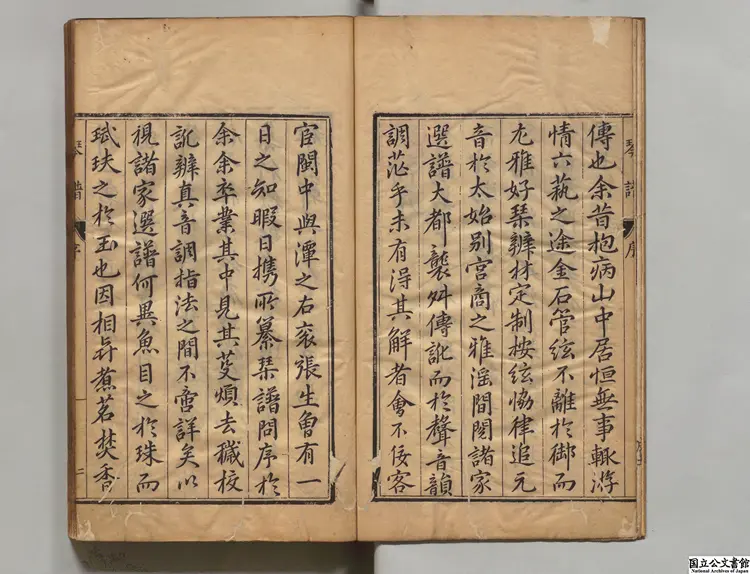 琴譜
序
傳也余昔抱病山中居恒無事輙游
情六藝之途金石管絃不離於御而
尤雅好琴辨材定制按絃恊律追元
音於太始别宮商之雅滛間閱諸家
選譜大都襲舛傳訛而於聲音韻
調茫乎未有淂其解者會不佞客
官閩中與潭之右衮張生曾有一
日之知暇日携所纂琴譜問序於
余余卒業其中見其芟煩去穢校
訛辨真音調指法之間不啻詳矣以
視諸家選譜何異魚目之於珠而
珷玞之於玉也因相与煮茗焚香
琴譜
序
二
国立公文書館
National Archives of Japan